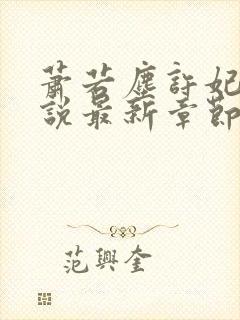 蕭若塵許妃
說最新章節
范興奎